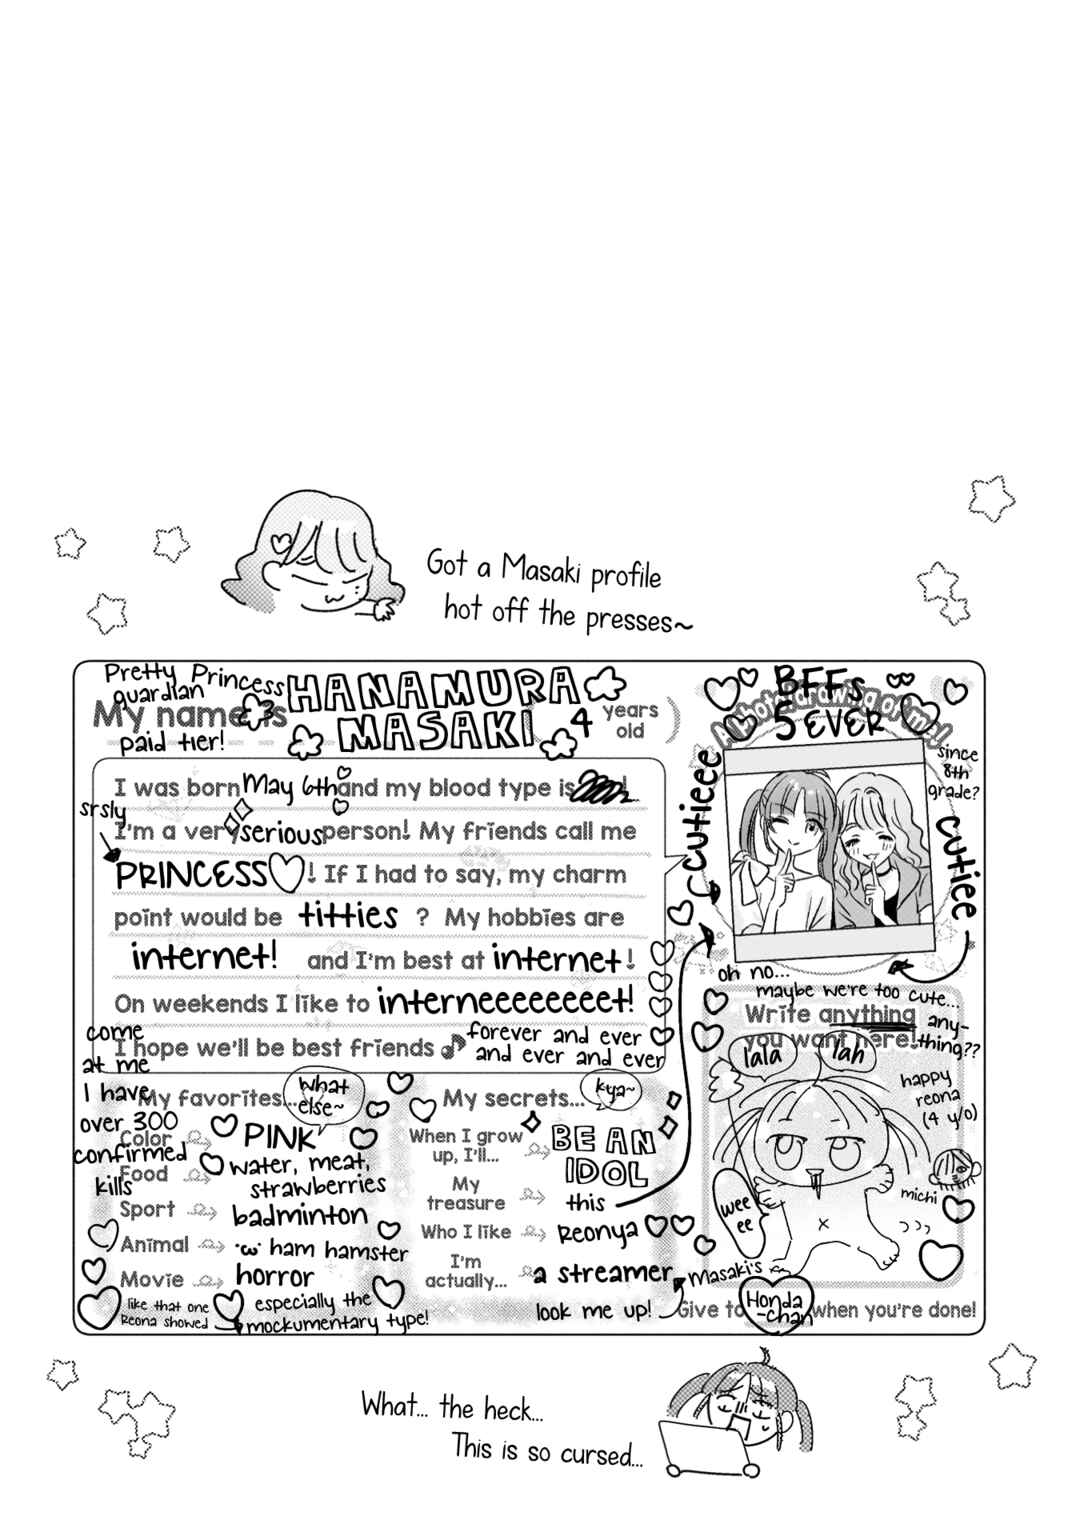 Got a Masaki profile
hot off the presses~
Pretty Princess
guardian
My name is
HANAMURA
MASAKI
paid tier!
( 4 years
old )
I was born May 6th and my blood type is !
srsly
I'm a very serious person! My friends call me
PRINCESS♡! If I had to say, my charm
point would be titties ? My hobbies are
internet! and I'm best at internet!
On weekends I like to interneeeeeeeet!
I hope we'll be best friends ♪
forever and ever
and ever and ever
come
at me
I have
over 300
confirmed
kills
My favorites...
what
else~
Color PINK
Food water, meat,
strawberries
Sport badminton
Animal ·ω· ham hamster
Movie horror
especially the
mockumentary type!
like that one
Reona showed
My secrets...
kya~
When I grow
up, I'll...
BE AN
IDOL
My
treasure
this
Who I like Reonya
I'm
actually...
a streamer
look me up!
BFFs
5EVER
A photo/drawing of me!
since
8th
grade?
cutieee
cutiee
oh no...
maybe we're too cute...
Write anything
you want here!
any-
thing??
lala
lah
happy
reona
(4 y/o)
michi
weee
ee
Masaki's
Give to Honda
-chan when you're done!
What... the heck...
This is so cursed...